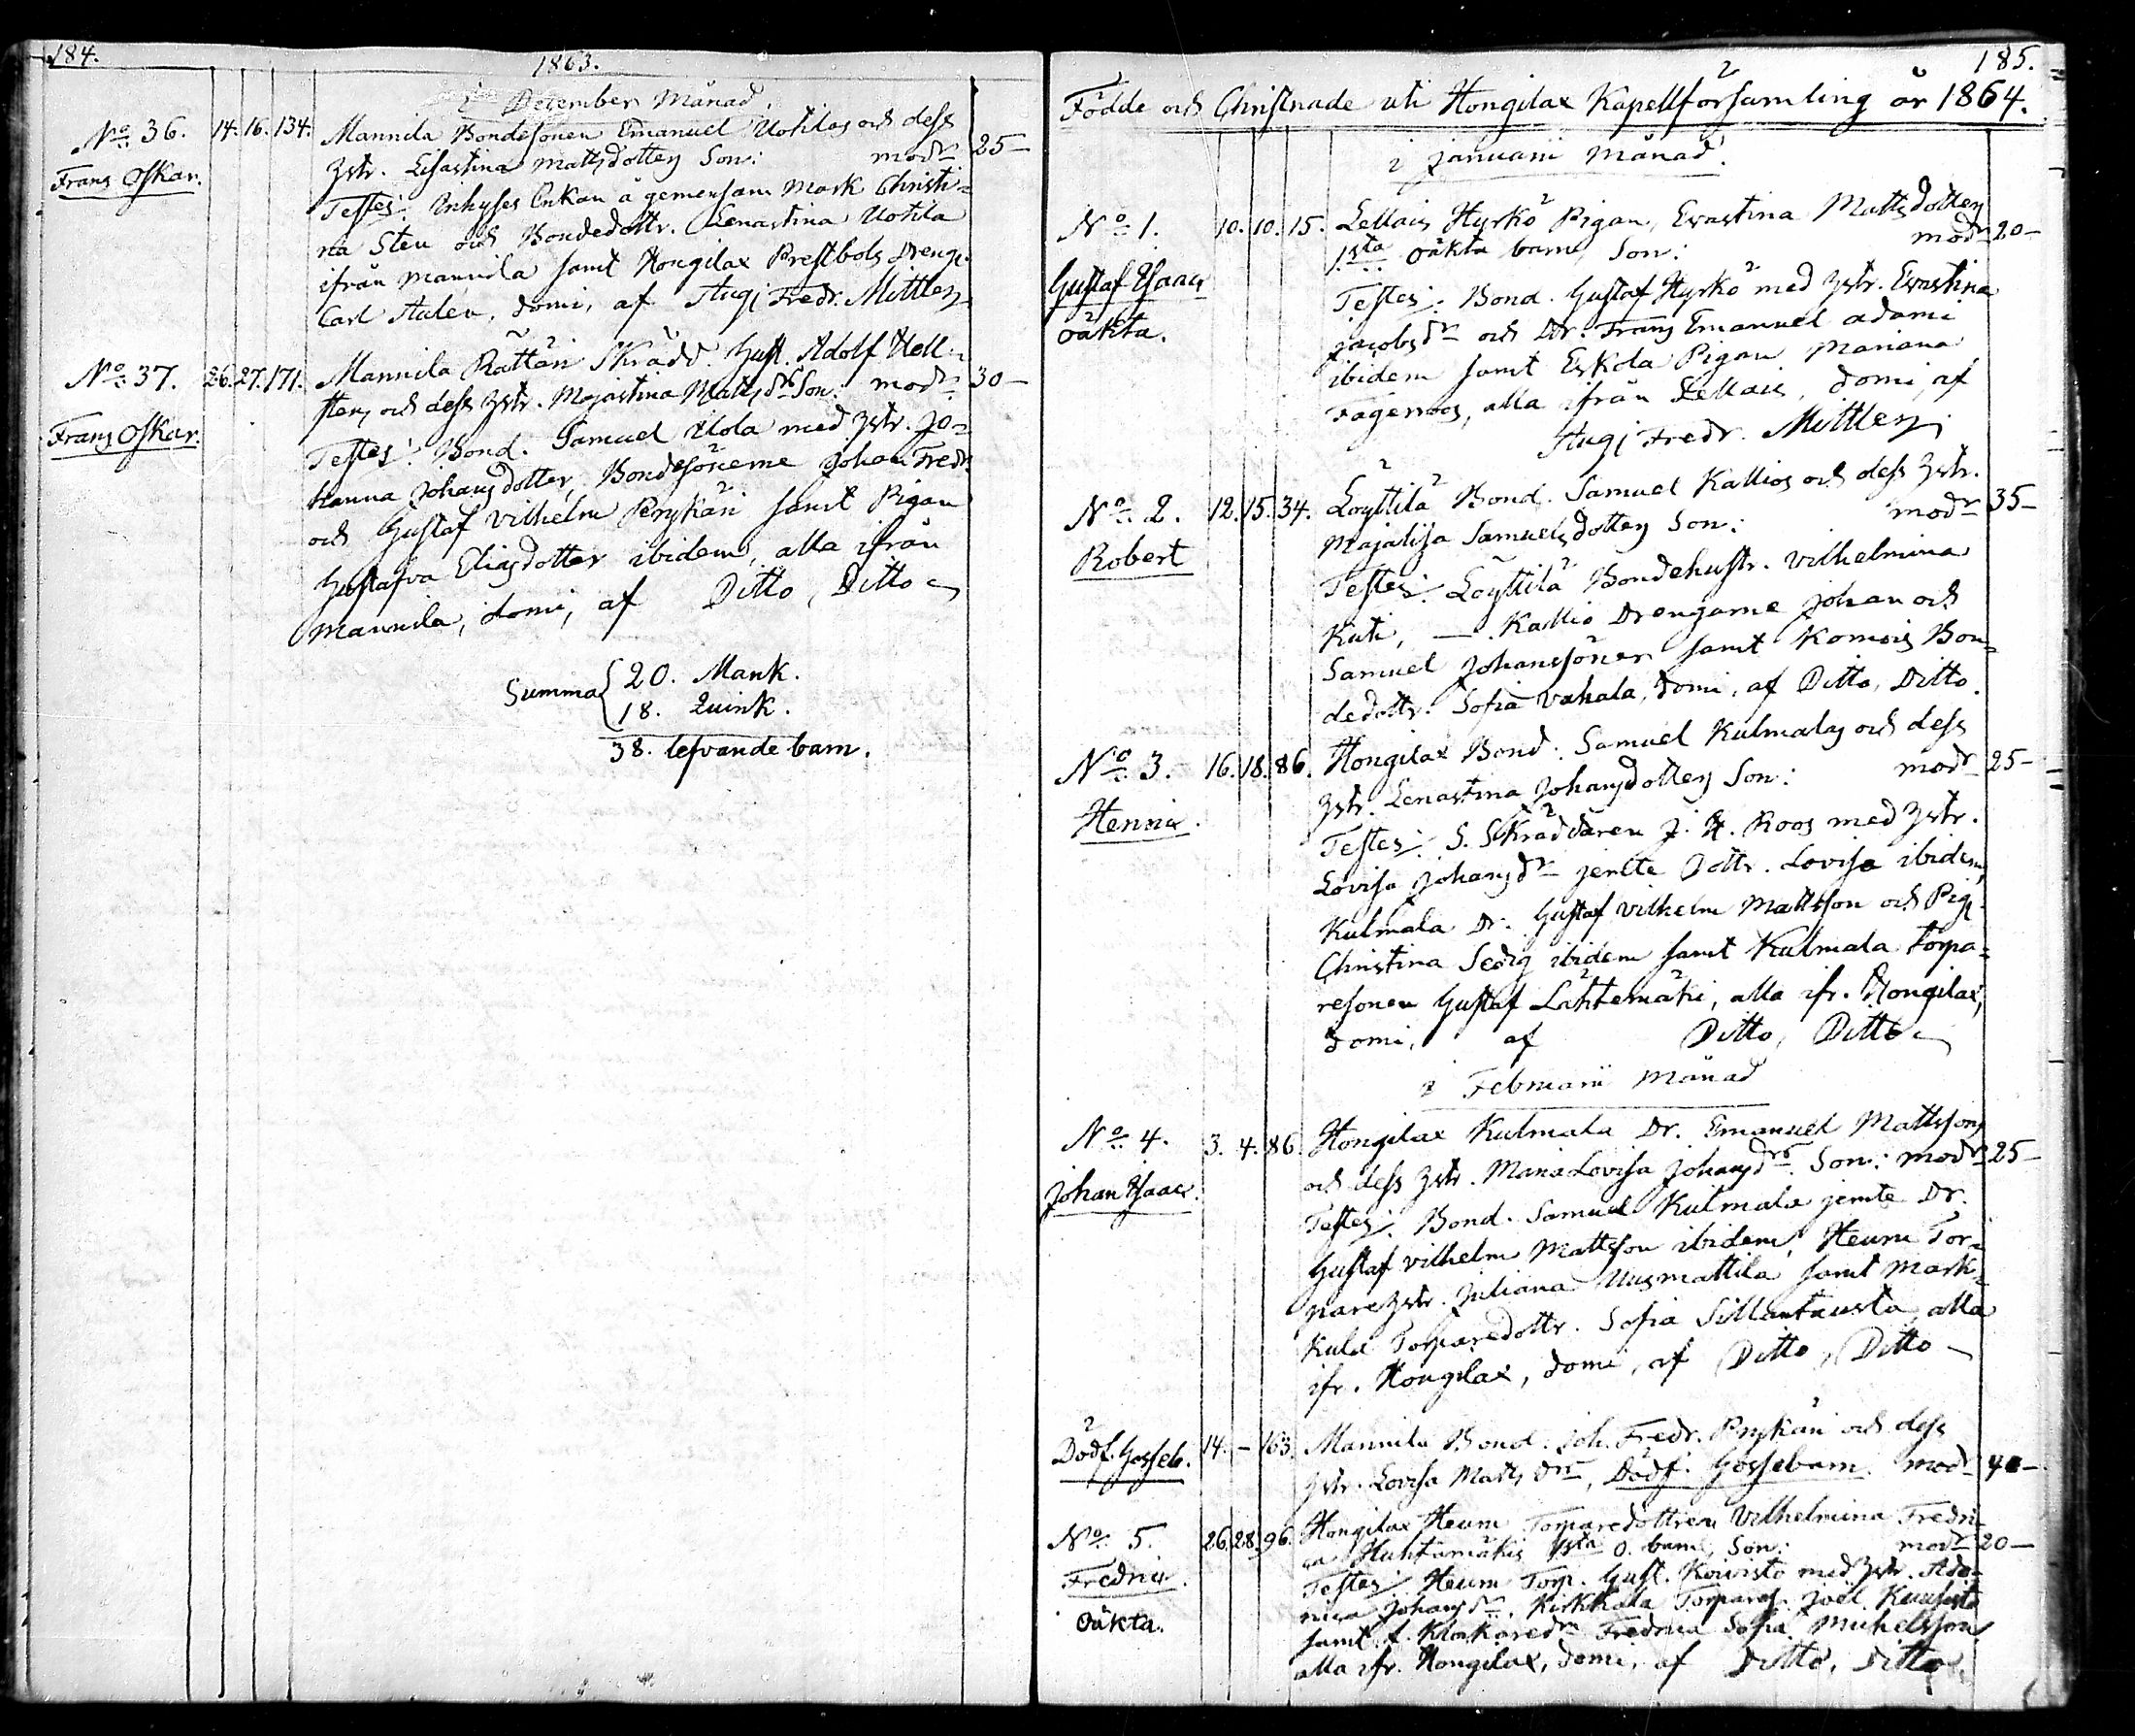 184.
1863.
i December Månad.
No 36. 14. 16. 134. Mannila Bondesonen Emanuel Uotilas och dess
Frans Oskar. Hstr. Lisastina Mattsdotters Son: modr 25-
Testes: Inhyses Enkan å gemensam mark Christi=
na Sten och Bondedottr. Lenastina Uotila
ifrån Mannila samt Hongilax Prestbols Dreng.
Carl Stalen, domi, af Aug. Fredr. Mittler
No 37. 26. 27. 171. Mannila Rättäri Skrädd. Gust. Adolf Hell=
stens och dess Hstr. Majastina Mattsdrs Son: modr 30-
Frans Oskar. Testes: Bond. Samuel Uola med Hstr. Jo=
hanna Johansdotter, Bondesönerne Johan Fredr.
och Gustaf Vilhelm Prykäri samt Pigan
Gustafva Eliasdotter ibidem, alla ifrån
Mannila, domi, af Ditto, Ditto
Summa 20. Mank.
18. Quink.
38. lefvande barn.
185.
Födde och Christnade uti Hongilax Kapellförsamling år 1864.
i Januarii Månad.
No 1. 10. 10. 15. Lellais Hyrkö Pigan, Evastina Mattsdotters
1sta oäkta barn, Son: modr 20-
Gustaf Isaac Testes: Bond. Gustaf Hyrkö med Hstr. Evastina
oäkta. Jacobsdr och Dr. Frans Emanuel Adami
ibidem samt Eskola Pigan Mariana
Fagerroos, alla ifrån Lellais, domi, af
Aug. Fredr. Mittler
No 2. 12. 15. 34. Löyttilä Bond. Samuel Kallios och dess Hstr.
Majalisa Samuelsdotters Son: modr 35-
Robert Testes: Löyttilä Bondehustr. Vilhelmina
Kuti, — Kallio Drengarne Johan och
Samuel Johanssöner samt Komois Bon=
dedottr. Sofia Vahala, domi, af Ditto, Ditto.
No 3. 16. 18. 86. Hongilax Bond. Samuel Kulmalas och dess
Hstr. Lenastina Johansdotters Son: modr 25-
Hennric. Testes: S. Skräddaren J. H. Roos med Hstr.
Lovisa Johansdr jemte Dottr. Lovisa ibidem,
Kulmala Dr. Gustaf Vilhelm Mattsson och Pig.
Christina Sedig ibidem samt Kulmala Torpa=
resonen Gustaf Lähtemäki, alla ifr. Hongilax,
domi, af Ditto, Ditto
i Februarii Månad
No 4. 3. 4. 86. Hongilax Kulmala Dr. Emanuel Mattssons
och dess Hstr. Maria Lovisa Johansdrs. Son: modr 25-
Johan Isaac. Testes: Bond. Samuel Kulmala jemte Dr.
Gustaf Vilhelm Mattsson ibidem, Heurn Tor=
pareHstr. Juliana Uusmattila samt Mark=
kula Torparedottr. Sofia Sillantausta, alla
ifr. Hongilax, domi, af Ditto, Ditto
Dödf. Gosseb. 14. - 163. Mannila Bond. Joh. Fredr. Prykäri och dess
Hstr. Lovisa Mattsdrs, Dödf. Gossebarn. modr 40-
No 5. 26. 28. 96. Hongilax Heurn Torparedottren Vilhelmina Fredri=
ca Huhtamäkis 1sta o. barn, Son: modr 20-
Fredric. Testes: Heurn Torp. Gust. Koivisto med Hstr.
oäkta. Johansdr, Kirkkala Torpares. Joël
samt f. Klockaredr Fredrica Sofia Michelsson
alla ifr. Hongilax, domi, af Ditto, Ditto